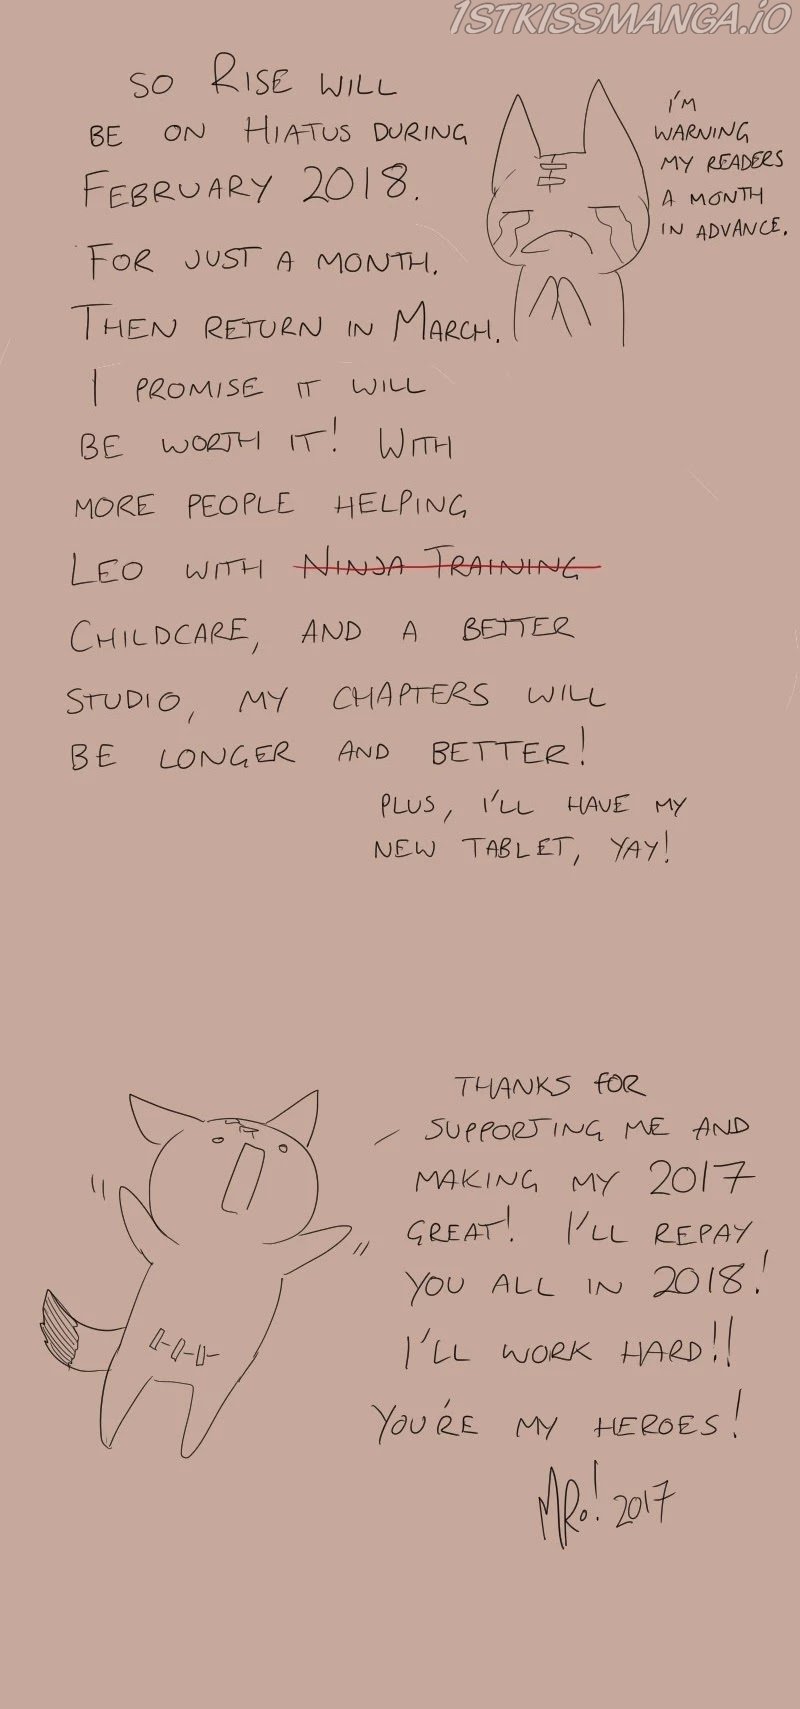 1STKISSMANGA.IO
SO RISE WILL
BE ON HIATUS DURING
FEBRUARY 2018.
FOR JUST A MONTH.
THEN RETURN IN MARCH.
I'M
WARNING
MY READERS
A MONTH
IN ADVANCE.
I PROMISE IT WILL
BE WORTH IT! WITH
MORE PEOPLE HELPING
LEO WITH NINJA TRAINING
CHILDCARE, AND A BETTER
STUDIO, MY CHAPTERS WILL
BE LONGER AND BETTER!
PLUS, I'LL HAVE MY
NEW TABLET, YAY!
THANKS FOR
SUPPORTING ME AND
MAKING MY 2017
GREAT! I'LL REPAY
YOU ALL IN 2018!
I'LL WORK HARD!!
YOU'RE MY HEROES!
MRo! 2017